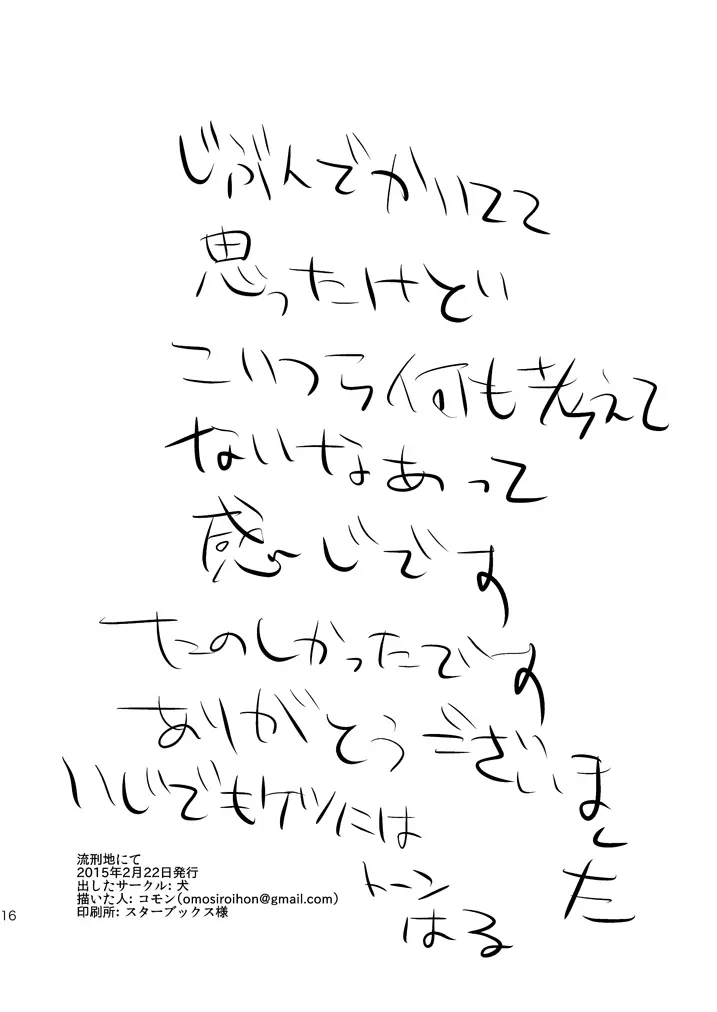 じぶんでかいてて
思ったけど
こいつら何も考えて
ないなあって
感じです
たのしかったです
ありがとうございました
いじでもケツには
トーン
はる
流刑地にて
2015年2月22日発行
出したサークル: 犬
描いた人: コモン(omosiroihon@gmail.com)
印刷所: スターブックス様
16